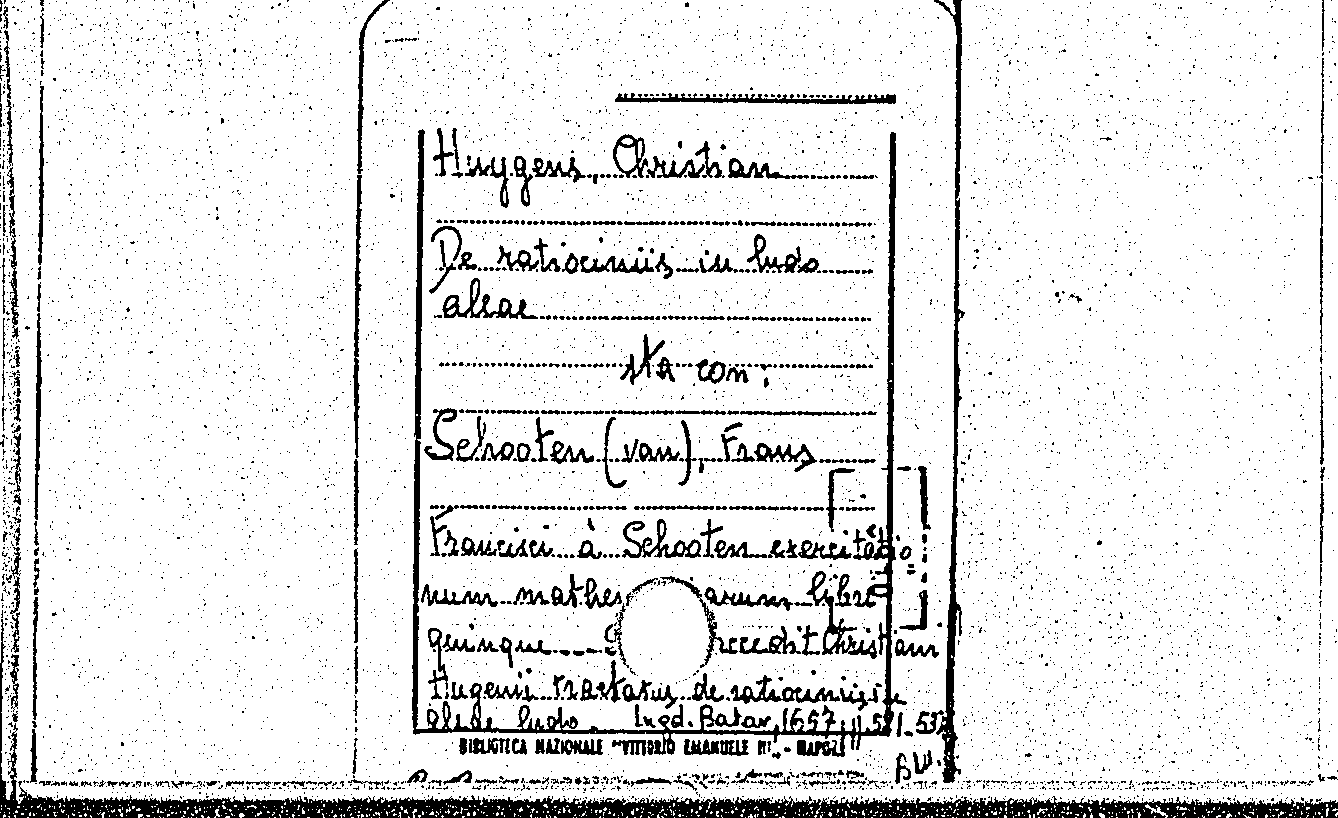 Huygens, Christian
De ratiociniis in ludo
aleae
sta con:
Schooten (van), Frans
Francisci à Schooten exercitatio
num mathe arum libri
quinque ccedit Christiani
Hugenii tractatus de ratociniis in
aleae ludo. Lugd. Batav, 1657,
BIBLIOTECA NAZIONALE "VITTORIO EMANUELE III" - NAPOLI